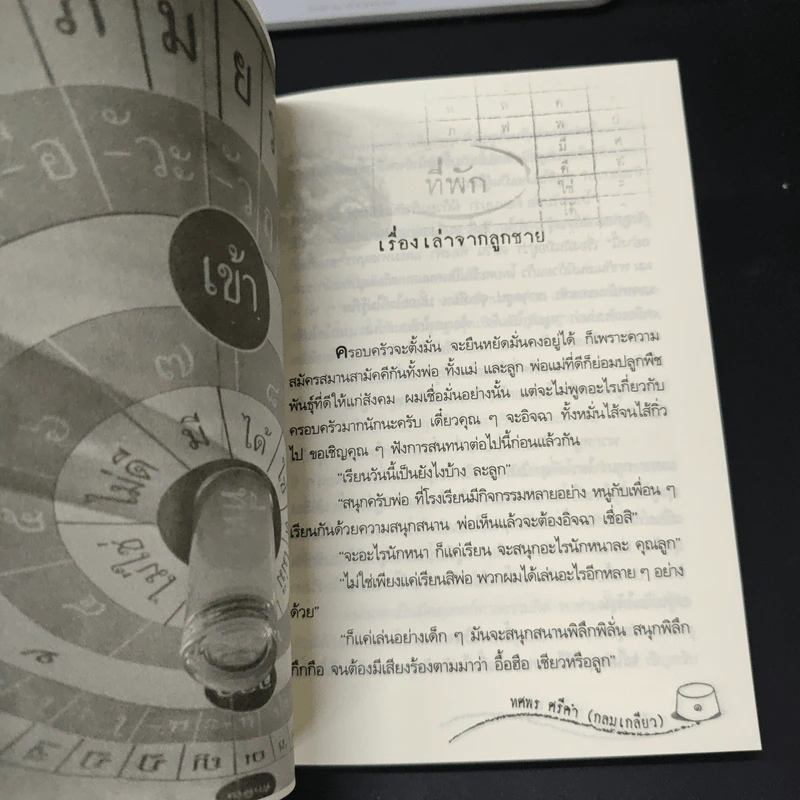 ภ ม ย
-อ -ัวะ -ัว
เข้า
ไม่ใช่ ไม่ดี มี ได้
ห ล ค
ภ ฟ พ ย
มี ศ
ดี ส
ใช่ ะ
ได้
ที่พัก
เรื่องเล่าจากลูกชาย
ครอบครัวจะตั้งมั่น จะยืนหยัดมั่นคงอยู่ได้ ก็เพราะความ
สมัครสมานสามัคคีกันทั้งพ่อ ทั้งแม่ และลูก พ่อแม่ที่ดีก็ย่อมปลูกพืช
พันธุ์ที่ดีให้แก่สังคม ผมเชื่อมั่นอย่างนั้น แต่จะไม่พูดอะไรเกี่ยวกับ
ครอบครัวมากนักนะครับ เดี๋ยวคุณ ๆ จะอิจฉา ทั้งหมั่นไส้จนไส้กิ่ว
ไป ขอเชิญคุณ ๆ ฟังการสนทนาต่อไปนี้ก่อนแล้วกัน
“เรียนวันนี้เป็นยังไงบ้าง ละลูก”
“สนุกครับพ่อ ที่โรงเรียนมีกิจกรรมหลายอย่าง หนูกับเพื่อน ๆ
เรียนกันด้วยความสนุกสนาน พ่อเห็นแล้วจะต้องอิจฉา เชื่อสิ”
“จะอะไรนักหนา ก็แค่เรียน จะสนุกอะไรนักหนาละ คุณลูก”
“ไม่ใช่เพียงแค่เรียนสิพ่อ พวกผมได้เล่นอะไรอีกหลาย ๆ อย่าง
ด้วย”
“ก็แค่เล่นอย่างเด็ก ๆ มันจะสนุกสนานพิลึกพิลั่น สนุกพิลึก
กึกกือ จนต้องมีเสียงร้องตามมาว่า อื้อฮือ เชียวหรือลูก”
ทศพร ศรีคำ (กลมเกลียว)
๑